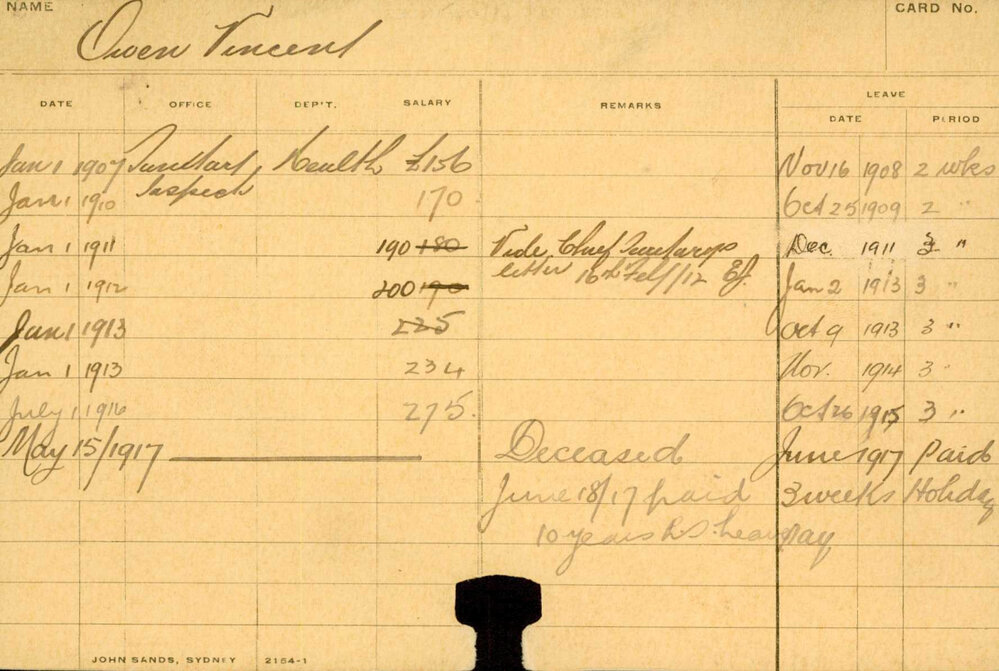 NAME
CARD No.
Owen Vincent
DATE OFFICE DEP'T. SALARY REMARKS LEAVE
DATE PERIOD
Jan 1 1907 Sanitary Health £156 Nov 16 1908 2 wks
Jan 1 1910 Inspect 170 Oct 25 1909 2 "
Jan 1 1911 190 180 Vide Chief Dec. 1911 3 "
Jan 1 1912 200 190 letter 16th Feb/12 Jan 2 1913 3 "
Jan 1 1913 225 Oct 9 1913 3 "
Jan 1 1913 234 Nov. 1914 3 "
July 1 1916 275. Oct 26 1915 3 "
May 15/1917 Deceased June 1917 Paid
June 18/17 paid 3 weeks Holiday
10 years pay
JOHN SANDS, SYDNEY 2164-1